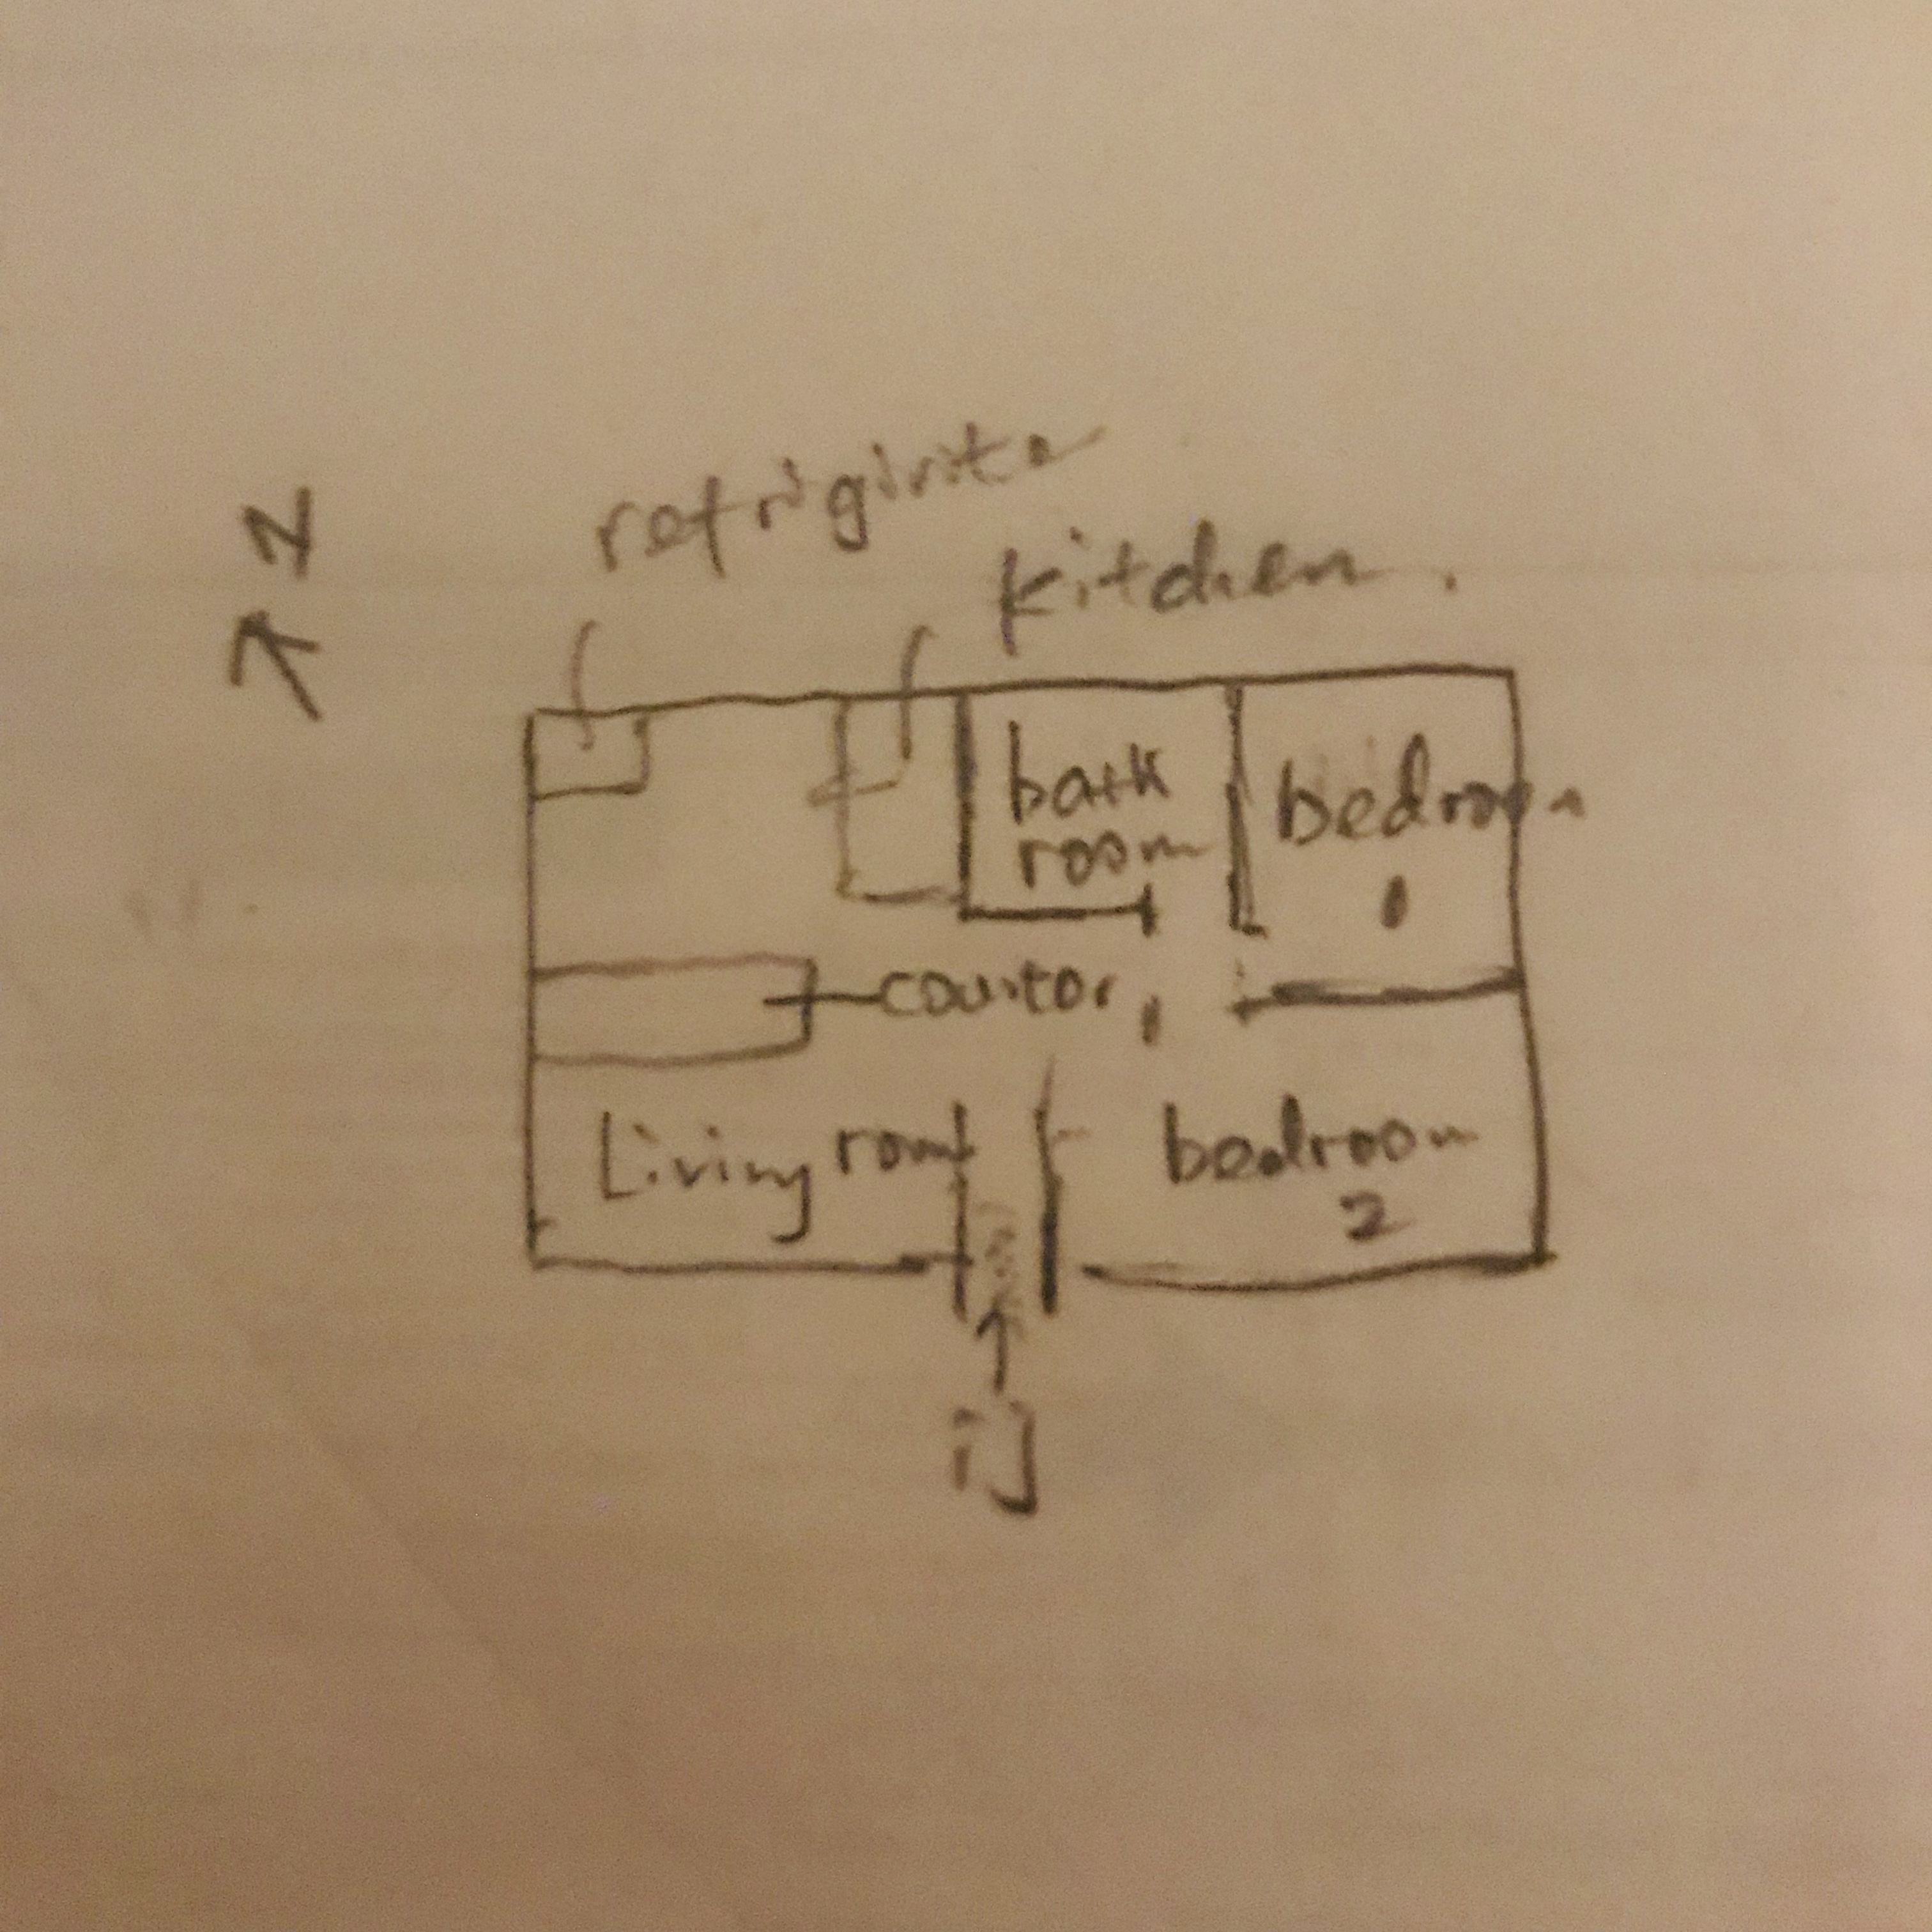 N
refrigirter
kitchen.
bath
room
bedroom
1
counter
Living room
bedroom
2
门